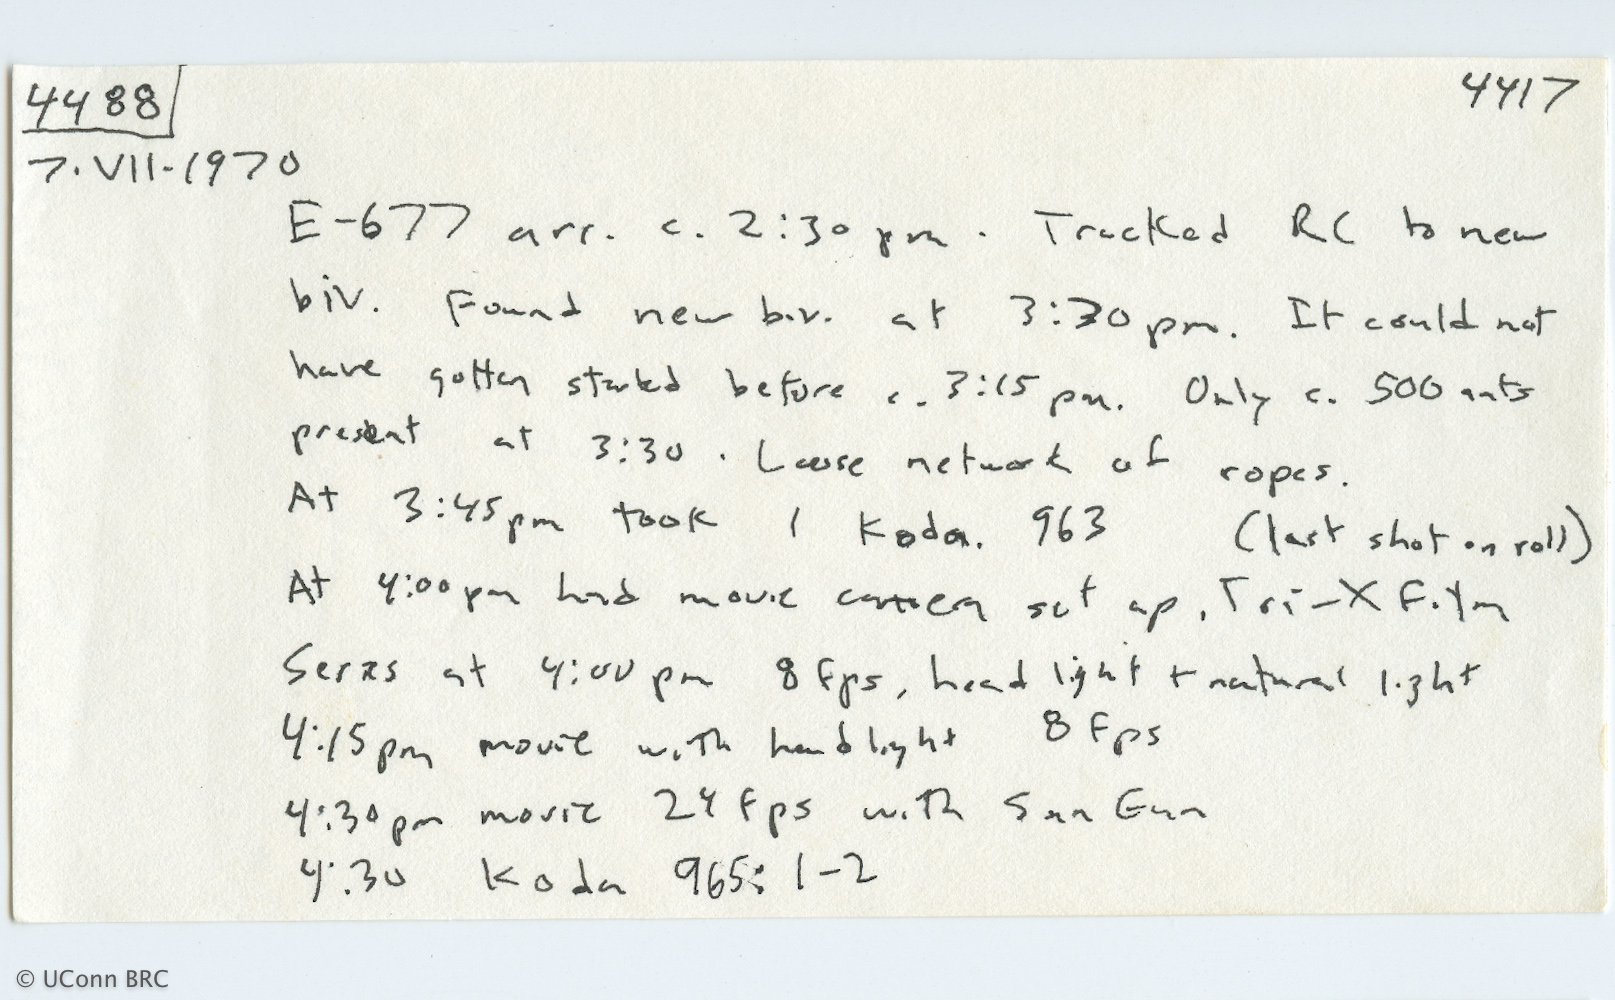 4488
4417
7.VII-1970
E-677 arr. c. 2:30 pm. Tracked RC to new
biv. Found new biv. at 3:30 pm. It could not
have gotten started before c. 3:15 pm. Only c. 500 ants
present at 3:30. Loose network of ropes.
At 3:45 pm took 1 Koda. 963 (last shot on roll)
At 4:00 pm had movie camera set up, Tri-X Film
Series at 4:00 pm 8 fps, head light + natural light
4:15 pm movie with headlight 8 fps
4:30 pm movie 24 fps with Sun Gun
4:30 Koda 965: 1-2
© UConn BRC